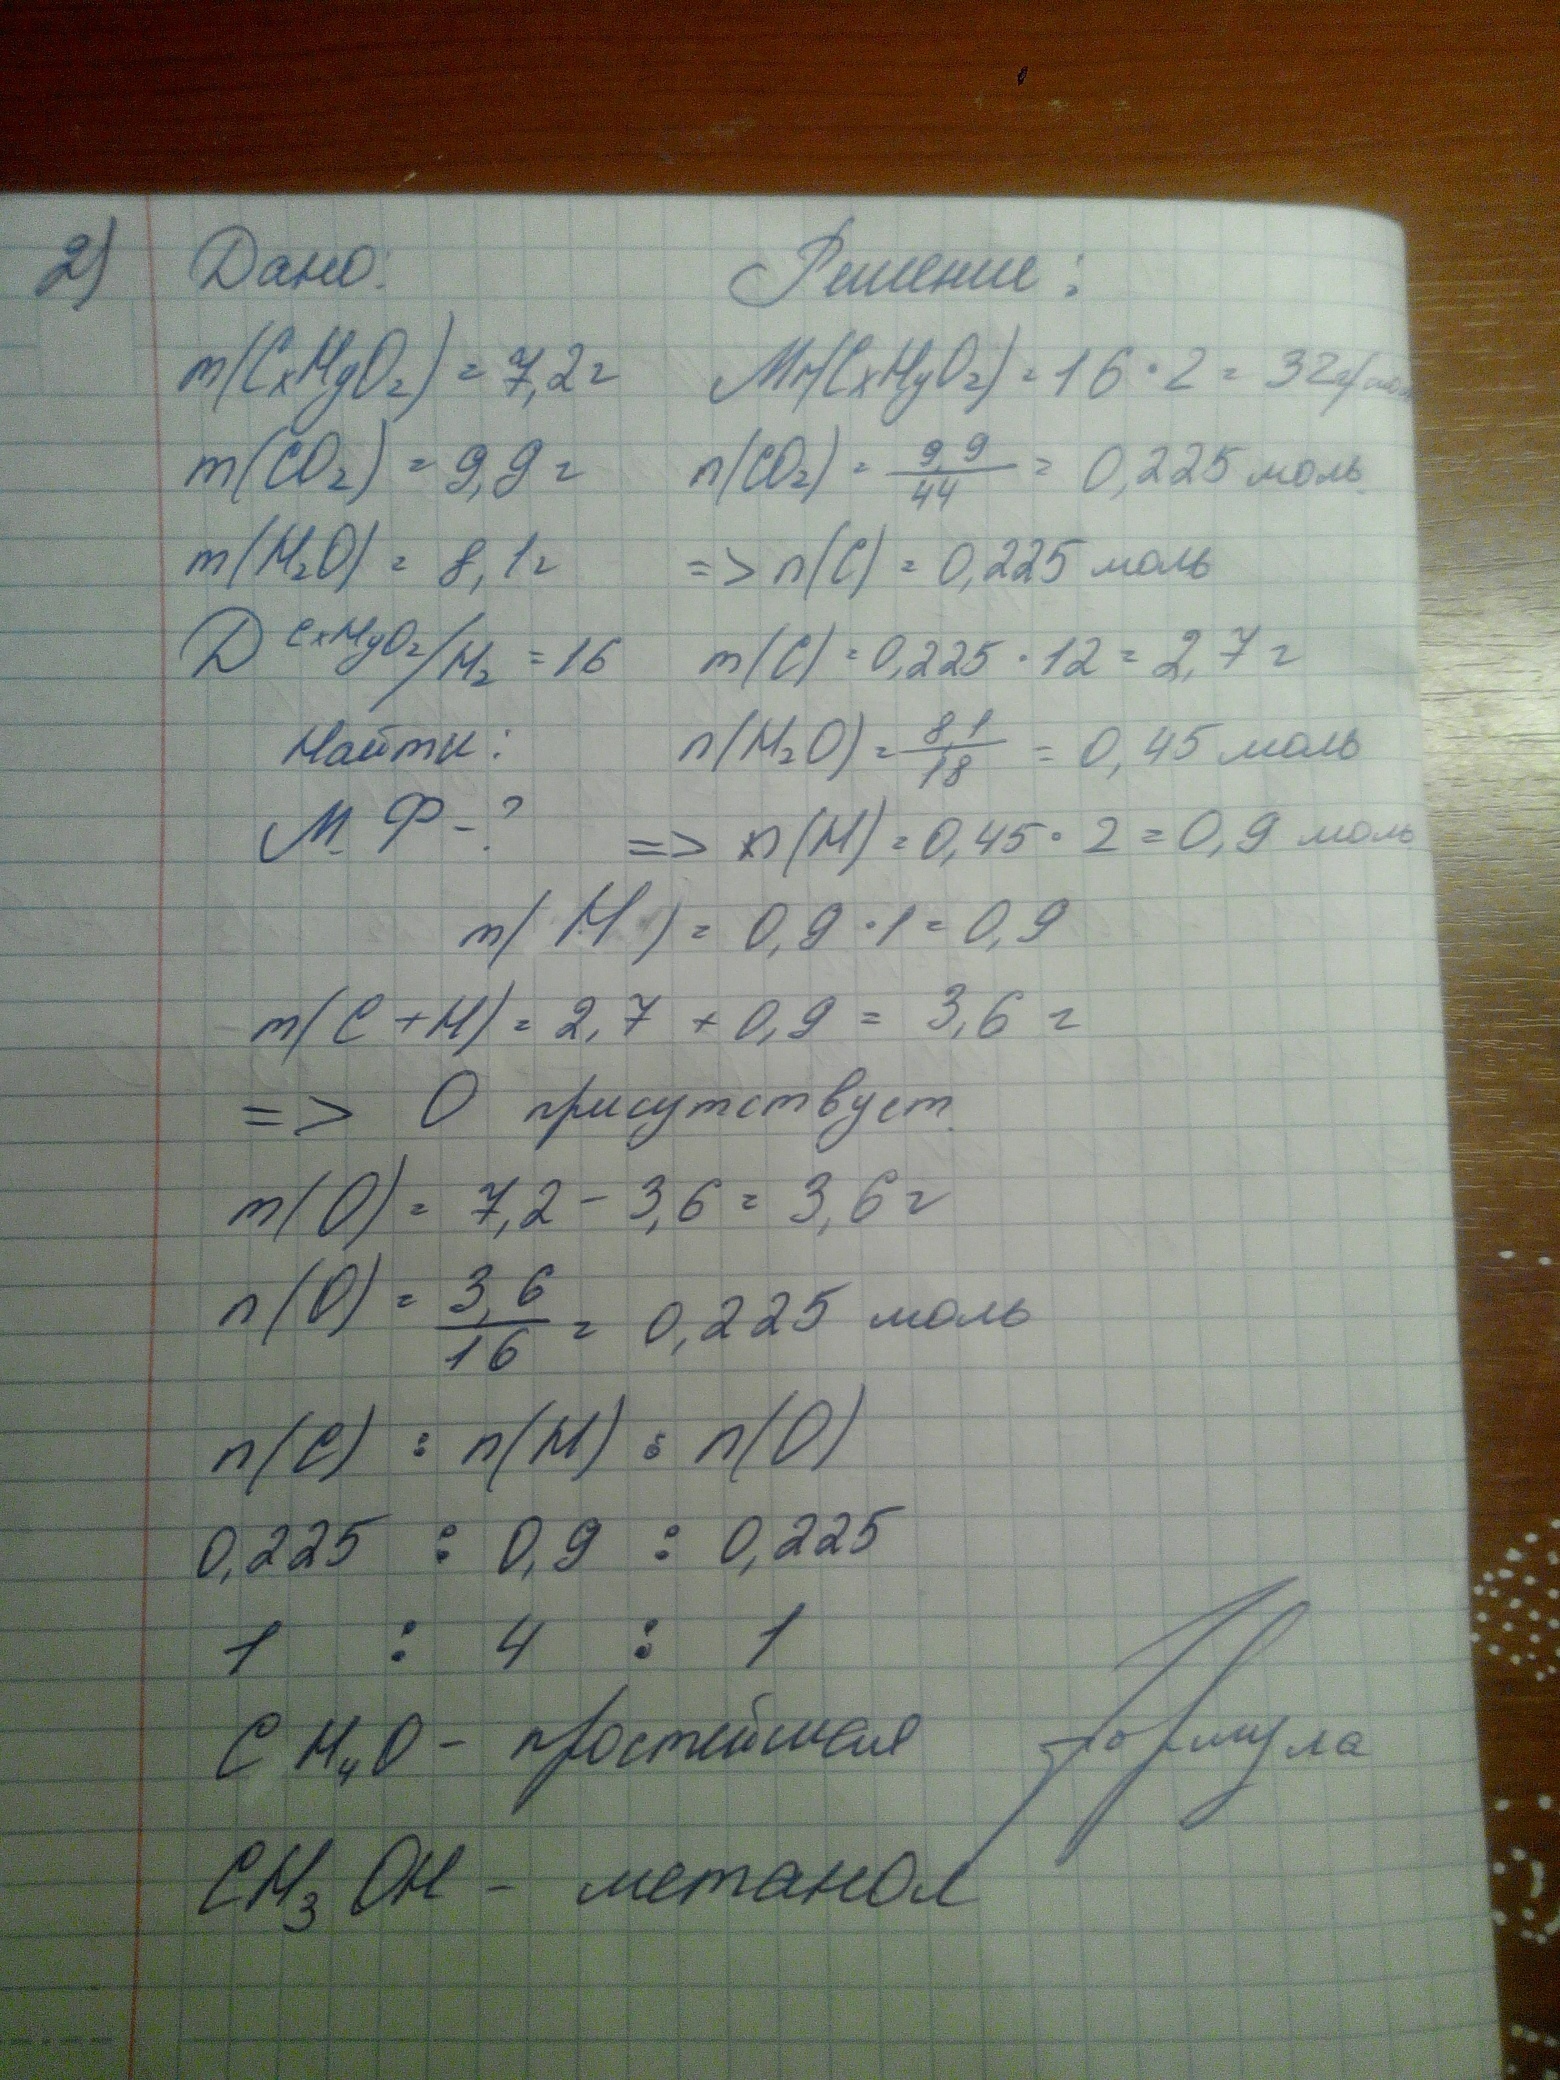 2) Дано: Решение:
m(CxHyOz) = 7,2г Mr(CxHyOz) = 16 · 2 = 32г/моль
m(CO₂) = 9,9г n(CO₂) = 9,9/44 = 0,225 моль
m(H₂O) = 8,1г => n(C) = 0,225 моль
D CxHyOz/H₂ = 16 m(C) = 0,225 · 12 = 2,7г
Найти: n(H₂O) = 8,1/18 = 0,45 моль
М.Ф - ? => n(H) = 0,45 · 2 = 0,9 моль
m(H) = 0,9 · 1 = 0,9
m(C + H) = 2,7 + 0,9 = 3,6 г
=> O присутствует.
m(O) = 7,2 - 3,6 = 3,6г
n(O) = 3,6/16 = 0,225 моль
n(C) : n(H) : n(O)
0,225 : 0,9 : 0,225
1 : 4 : 1
CH₄O - простейшая формула
CH₃OH - метанол